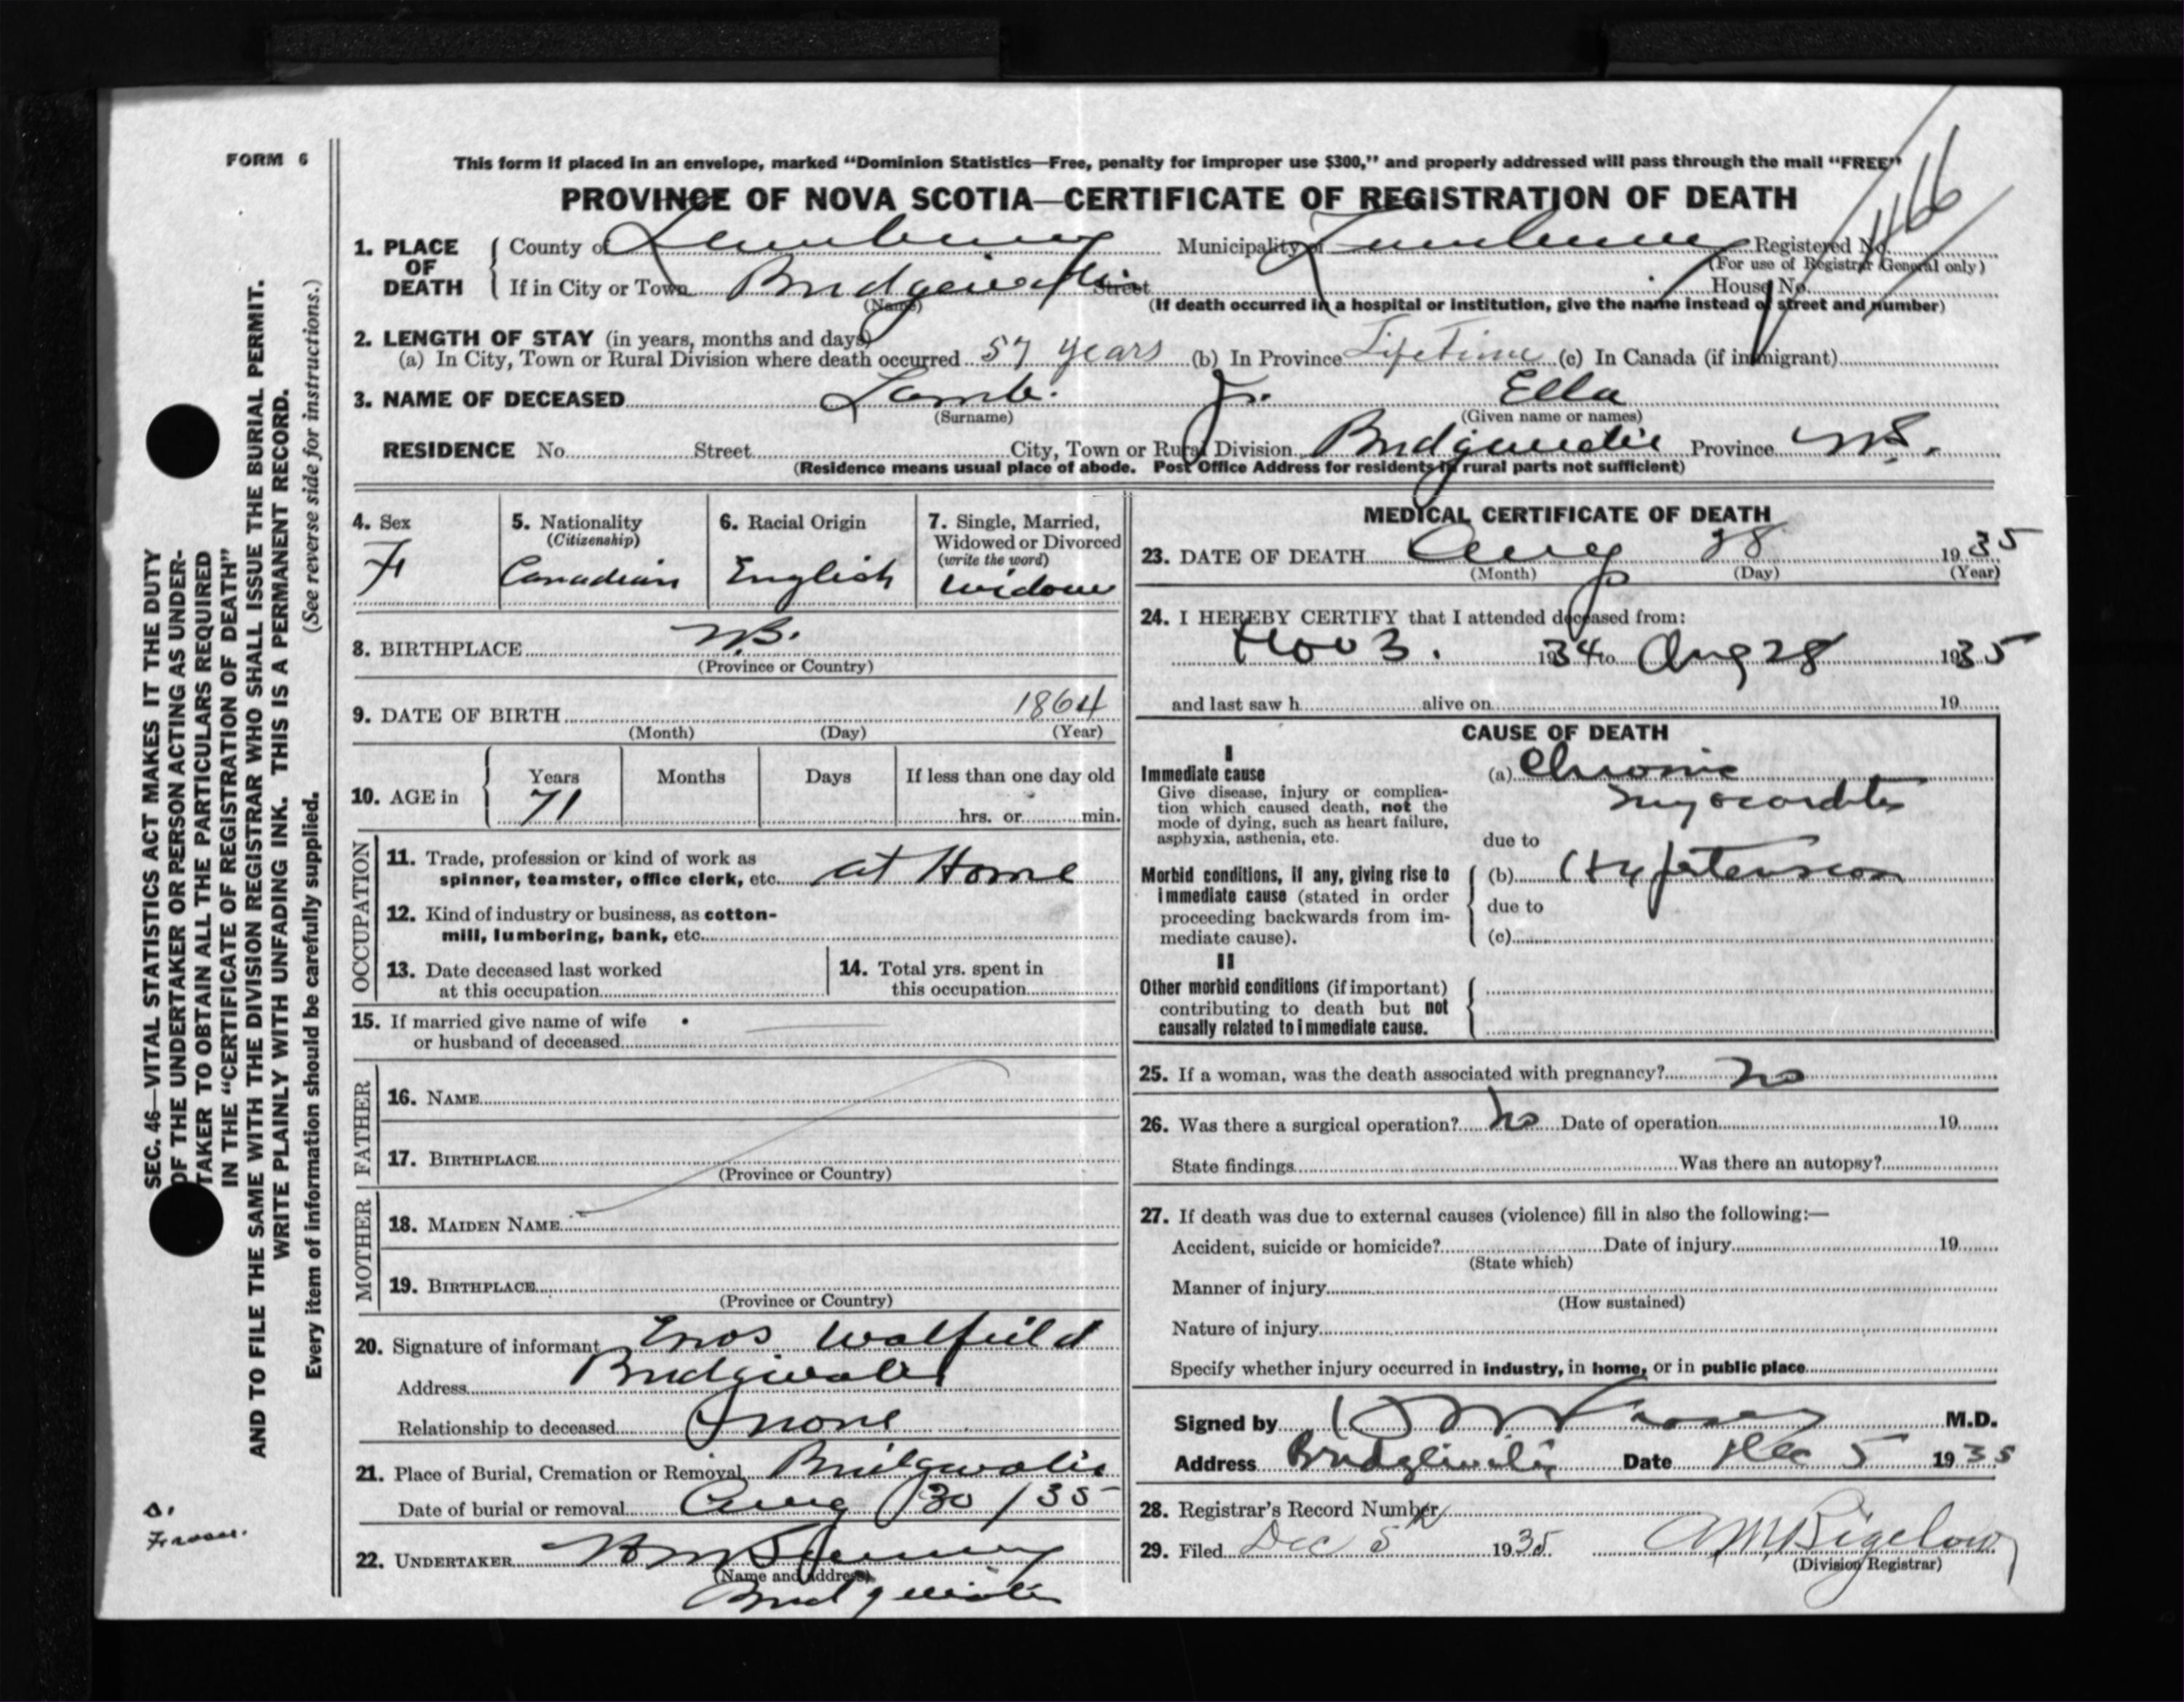 FORM 6
This form if placed in an envelope, marked “Dominion Statistics—Free, penalty for improper use $300,” and properly addressed will pass through the mail “FREE”
PROVINCE OF NOVA SCOTIA—CERTIFICATE OF REGISTRATION OF DEATH
1466
1. PLACE OF DEATH { County of Lunenburg Municipality of Lunenburg Registered No.
(For use of Registrar General only)
If in City or Town Bridgewater Street House No.
(Name) (If death occurred in a hospital or institution, give the name instead of street and number)
2. LENGTH OF STAY (in years, months and days)
(a) In City, Town or Rural Division where death occurred 57 years (b) In Province Life Time (c) In Canada (if immigrant)
3. NAME OF DECEASED Lamb. Ella
(Surname) (Given name or names)
RESIDENCE No. Street City, Town or Rural Division Bridgewater Province N.S.
(Residence means usual place of abode. Post Office Address for residents in rural parts not sufficient)
4. Sex
F
5. Nationality
(Citizenship)
Canadian
6. Racial Origin
English
7. Single, Married,
Widowed or Divorced
(write the word)
widow
8. BIRTHPLACE
(Province or Country)
9. DATE OF BIRTH 1864
(Month) (Day) (Year)
10. AGE in { Years Months Days If less than one day old
71 hrs. or min.
OCCUPATION
11. Trade, profession or kind of work as
spinner, teamster, office clerk, etc. at Home
12. Kind of industry or business, as cotton-
mill, lumbering, bank, etc.
13. Date deceased last worked
at this occupation
14. Total yrs. spent in
this occupation
15. If married give name of wife
or husband of deceased
FATHER
16. NAME
17. BIRTHPLACE
(Province or Country)
MOTHER
18. MAIDEN NAME
19. BIRTHPLACE
(Province or Country)
20. Signature of informant Enos Walfield
Address Bridgewater
Relationship to deceased none
21. Place of Burial, Cremation or Removal Bridgewater
Date of burial or removal Aug 30/35
22. UNDERTAKER
(Name and address)
Bridgewater
MEDICAL CERTIFICATE OF DEATH
23. DATE OF DEATH Aug 28 1935
(Month) (Day) (Year)
24. I HEREBY CERTIFY that I attended deceased from:
Nov 3. 1934 to Aug 28 1935
and last saw h alive on 19
CAUSE OF DEATH
I
Immediate cause
Give disease, injury or complica-
tion which caused death, not the
mode of dying, such as heart failure,
asphyxia, asthenia, etc.
(a) Chronic
myocarditis
due to
Morbid conditions, if any, giving rise to
immediate cause (stated in order
proceeding backwards from im-
mediate cause).
(b) Hypertension
due to
(c)
II
Other morbid conditions (if important)
contributing to death but not
causally related to immediate cause.
25. If a woman, was the death associated with pregnancy? no
26. Was there a surgical operation? no Date of operation 19
State findings Was there an autopsy?
27. If death was due to external causes (violence) fill in also the following:—
Accident, suicide or homicide? Date of injury 19
(State which)
Manner of injury
(How sustained)
Nature of injury
Specify whether injury occurred in industry, in home, or in public place
Signed by M.D.
Address Bridgewater Date Dec 5 1935
28. Registrar's Record Number
29. Filed Dec 5th 1935 A M Bigelow
(Division Registrar)
SEC. 46—VITAL STATISTICS ACT MAKES IT THE DUTY
OF THE UNDERTAKER OR PERSON ACTING AS UNDER-
TAKER TO OBTAIN ALL THE PARTICULARS REQUIRED
IN THE “CERTIFICATE OF REGISTRATION OF DEATH”
AND TO FILE THE SAME WITH THE DIVISION REGISTRAR WHO SHALL ISSUE THE BURIAL PERMIT.
WRITE PLAINLY WITH UNFADING INK. THIS IS A PERMANENT RECORD.
Every item of information should be carefully supplied. (See reverse side for instructions.)
Fraser.